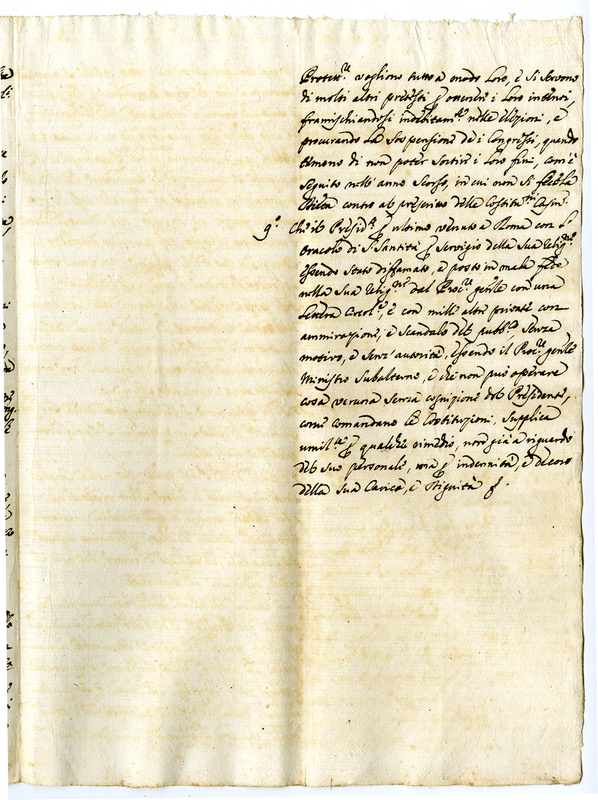 vogliono tutto a modo loro, e si servono
di molti altri pretesti p ottenere i loro intenti,
framischiandosi nelle elezioni, e
procurando la sospensione de i Congressi, quando
temono di non poter sortire i loro fini, com'è
seguito nell'anno scorso, in cui non si
contro al prescritto delle
9.° Che il Presid.te p ultimo venuto a Roma con l'
Oracolo di S. Santità p servigio della sua Relig.ne
essendo stato diffamato, e posto in mala fede
nella sua Relig.ne dal Proc.re gen'le con una
lettera Circol.e, e con mille altre private con
ammirazione, e scandalo del pubb.co senza
motivo, e senz'autorità, essendo il Proc.re gen'le
Ministro subalterno, e che non può operare
cosa veruna senza cognizione del Presidente,
come comandano le Costituzioni, supplica
umil.te p qualche rimedio, non già a riguardo
del suo personale, ma p indennità, e decoro
della sua Carica, e Dignità